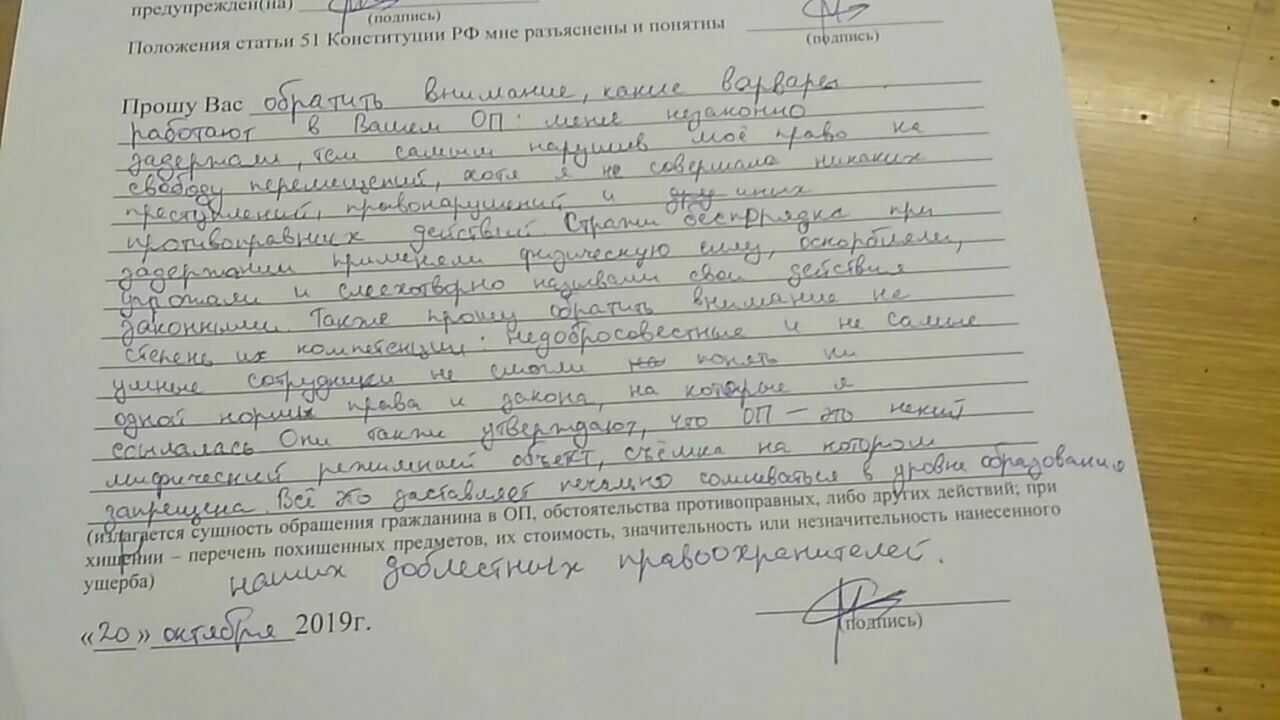 предупрежден(на)
(подпись)
Положения статьи 51 Конституции РФ мне разъяснены и понятны
(подпись)
Прошу Вас обратить внимание, какие варвары
работают в Вашем ОП: меня незаконно
задержали, тем самым нарушив моё право на
свободу перемещений, хотя я не совершала никаких
преступлений, правонарушений и иных
противоправных действий. Стражи беспорядка при
задержании применяли физическую силу, оскорбляли,
угрожали и смехотворно называли свои действия
законными. Также прошу обратить внимание на
степень их компетенции: недобросовестные и не самые
умные сотрудники не смогли понять ни
одной нормы права и закона, на которые я
ссылалась. Они также утверждают, что ОП — это некий
мифический режимный объект, съёмка на котором
запрещена. Всё это заставляет печально сомневаться в уровне образования
(излагается сущность обращения гражданина в ОП, обстоятельства противоправных, либо других действий; при
хищении – перечень похищенных предметов, их стоимость, значительность или незначительность нанесенного
ущерба) наших доблестных правоохранителей.
«20» октября 2019г.
(подпись)